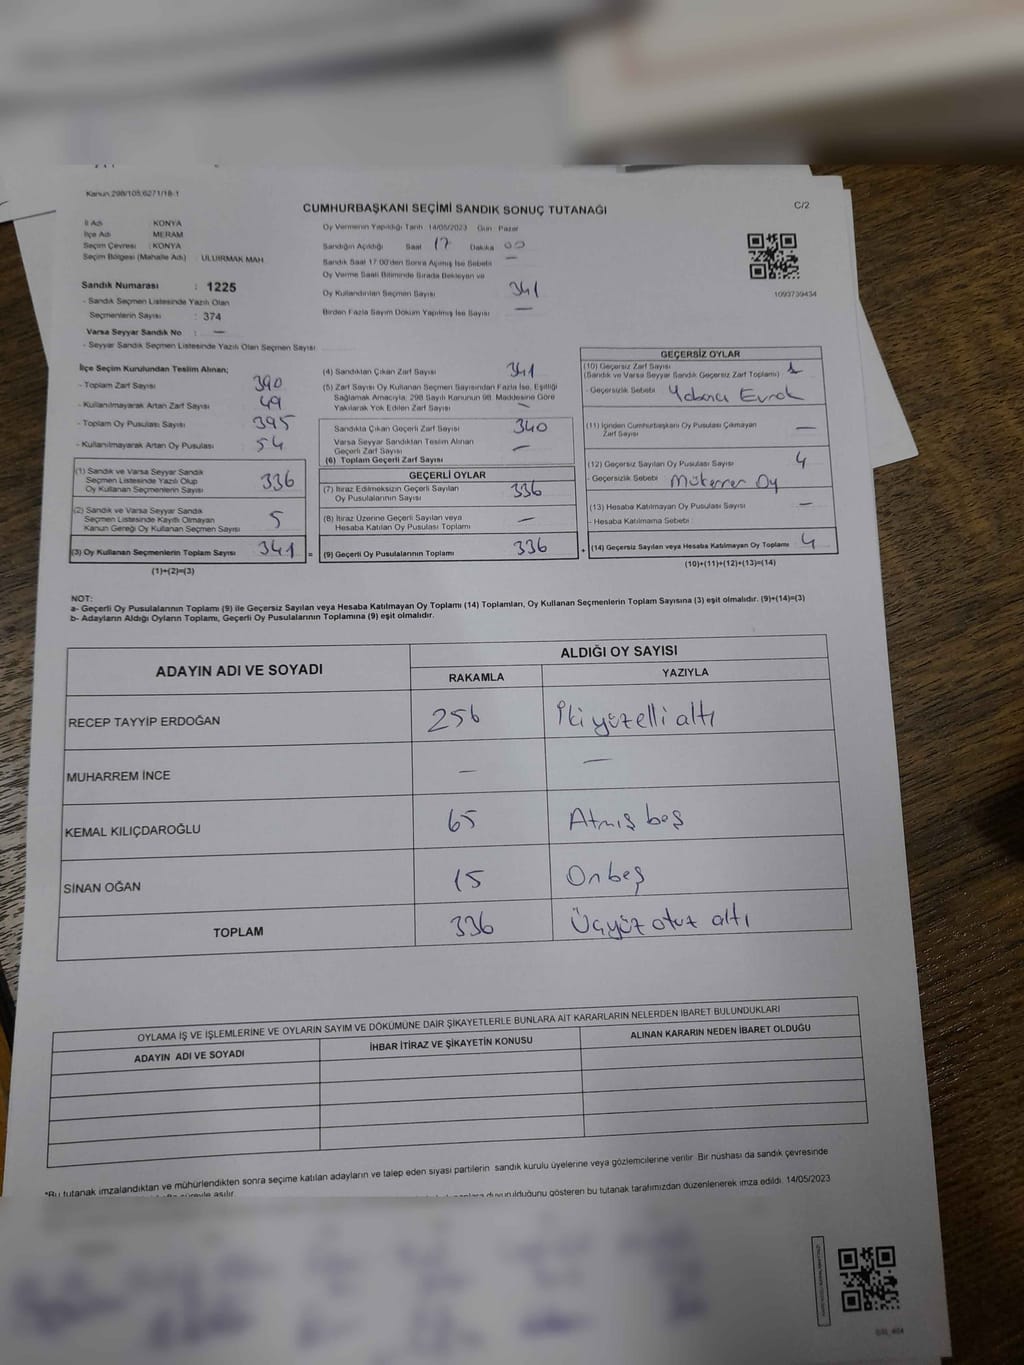 Kanun 298/105,6271/18-1
C/2
CUMHURBAŞKANI SEÇİMİ SANDIK SONUÇ TUTANAĞI
İl Adı : KONYA
İlçe Adı : MERAM
Seçim Çevresi : KONYA
Seçim Bölgesi (Mahalle Adı) : ULUIRMAK MAH.
Sandık Numarası : 1225
- Sandık Seçmen Listesinde Yazılı Olan
Seçmenlerin Sayısı : 374
Varsa Seyyar Sandık No : —
- Seyyar Sandık Seçmen Listesinde Yazılı Olan Seçmen Sayısı
Oy Vermenin Yapıldığı Tarih 14/05/2023 Gün Pazar
Sandığın Açıldığı Saat 17 Dakika 00
Sandık Saat 17:00'den Sonra Açılmış İse Sebebi —
Oy Verme Saati Bitiminde Sırada Bekleyen ve
Oy Kullandırılan Seçmen Sayısı 341
Birden Fazla Sayım Döküm Yapılmış İse Sayısı —
1093739434
İlçe Seçim Kurulundan Teslim Alınan;
- Toplam Zarf Sayısı 390
- Kullanılmayarak Artan Zarf Sayısı 49
- Toplam Oy Pusulası Sayısı 395
- Kullanılmayarak Artan Oy Pusulası 54
(1) Sandık ve Varsa Seyyar Sandık
Seçmen Listesinde Yazılı Olup
Oy Kullanan Seçmenlerin Sayısı 336
(2) Sandık ve Varsa Seyyar Sandık
Seçmen Listesinde Kayıtlı Olmayan
Kanun Gereği Oy Kullanan Seçmen Sayısı 5
(3) Oy Kullanan Seçmenlerin Toplam Sayısı 341 =
(1)+(2)=(3)
(4) Sandıktan Çıkan Zarf Sayısı 341
(5) Zarf Sayısı Oy Kullanan Seçmen Sayısından Fazla İse, Eşitliği
Sağlamak Amacıyla, 298 Sayılı Kanunun 98. Maddesine Göre
Yakılarak Yok Edilen Zarf Sayısı —
Sandıkta Çıkan Geçerli Zarf Sayısı 340
Varsa Seyyar Sandıktan Teslim Alınan
Geçerli Zarf Sayısı —
(6) Toplam Geçerli Zarf Sayısı
GEÇERLİ OYLAR
(7) İtiraz Edilmeksizin Geçerli Sayılan
Oy Pusulalarının Sayısı 336
(8) İtiraz Üzerine Geçerli Sayılan veya
Hesaba Katılan Oy Pusulası Toplamı —
(9) Geçerli Oy Pusulalarının Toplamı 336 +
GEÇERSİZ OYLAR
(10) Geçersiz Zarf Sayısı
(Sandık ve Varsa Seyyar Sandık Geçersiz Zarf Toplamı) 1
- Geçersizlik Sebebi Yabancı Evrak
(11) İçinden Cumhurbaşkanı Oy Pusulası Çıkmayan
Zarf Sayısı —
(12) Geçersiz Sayılan Oy Pusulası Sayısı 4
- Geçersizlik Sebebi Mükerrer Oy
(13) Hesaba Katılmayan Oy Pusulası Sayısı —
- Hesaba Katılmama Sebebi
(14) Geçersiz Sayılan veya Hesaba Katılmayan Oy Toplamı 4
(10)+(11)+(12)+(13)=(14)
NOT:
a- Geçerli Oy Pusulalarının Toplamı (9) ile Geçersiz Sayılan veya Hesaba Katılmayan Oy Toplamı (14) Toplamları, Oy Kullanan Seçmenlerin Toplam Sayısına (3) eşit olmalıdır. (9)+(14)=(3)
b- Adayların Aldığı Oyların Toplamı, Geçerli Oy Pusulalarının Toplamına (9) eşit olmalıdır.
ADAYIN ADI VE SOYADI
ALDIĞI OY SAYISI
RAKAMLA YAZIYLA
RECEP TAYYİP ERDOĞAN 256 İki yüzelli altı
MUHARREM İNCE — —
KEMAL KILIÇDAROĞLU 65 Atmış beş
SİNAN OĞAN 15 Onbeş
TOPLAM 336 Üçyüz otuz altı
OYLAMA İŞ VE İŞLEMLERİNE VE OYLARIN SAYIM VE DÖKÜMÜNE DAİR ŞİKAYETLERLE BUNLARA AİT KARARLARIN NELERDEN İBARET BULUNDUKLARI
ADAYIN ADI VE SOYADI İHBAR İTİRAZ VE ŞİKAYETİN KONUSU ALINAN KARARIN NEDEN İBARET OLDUĞU
*Bu tutanak imzalandıktan ve mühürlendikten sonra seçime katılan adayların ve talep eden siyasi partilerin sandık kurulu üyelerine veya gözlemcilerine verilir. Bir nüshası da sandık çevresinde
süreyle asılır. duyurulduğunu gösteren bu tutanak tarafımızdan düzenlenerek imza edildi. 14/05/2023